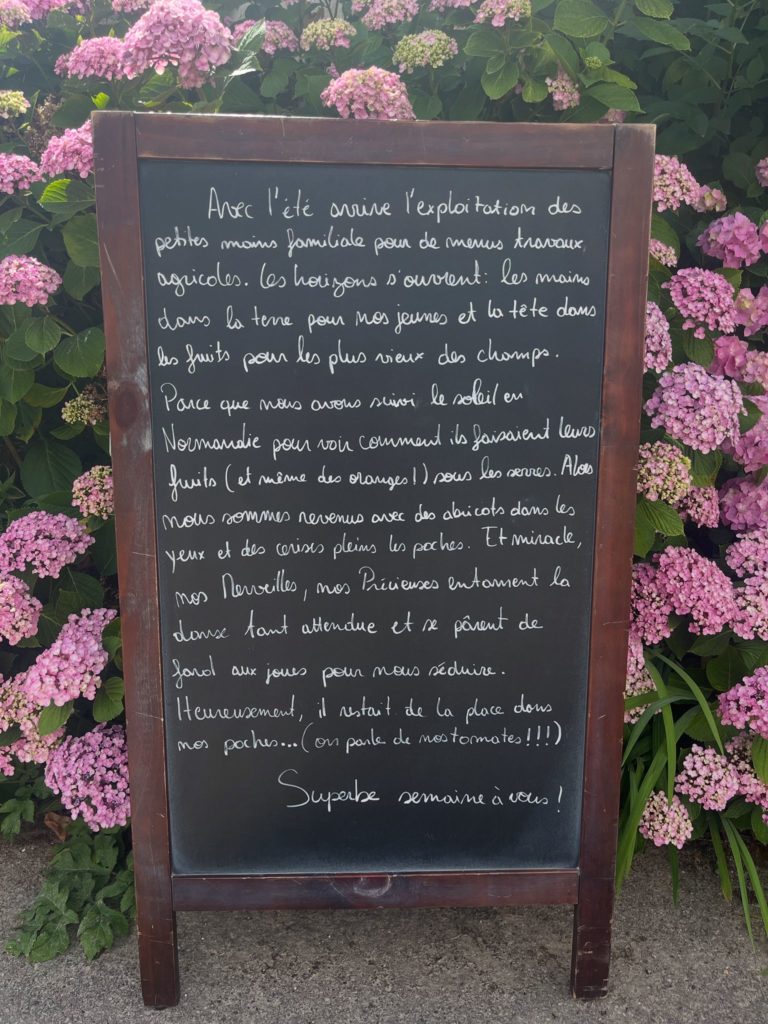 Avec l'été arrive l'exploitation des
petites mains familiale pour de menus travaux
agricoles. Les horizons s'ouvrent: les mains
dans la terre pour nos jeunes et la tête dans
les fruits pour les plus vieux des champs.
Parce que nous avons suivi le soleil en
Normandie pour voir comment ils faisaient leurs
fruits (et même des oranges!) sous les serres. Alors
nous sommes revenus avec des abricots dans les
yeux et des cerises pleins les poches. Et miracle,
nos Merveilles, nos Précieuses entament la
danse tant attendue et se pârent de
fard aux joues pour nous séduire.
Heureusement, il restait de la place dans
nos poches... (on parle de nos tomates!!!)
Superbe semaine à vous!